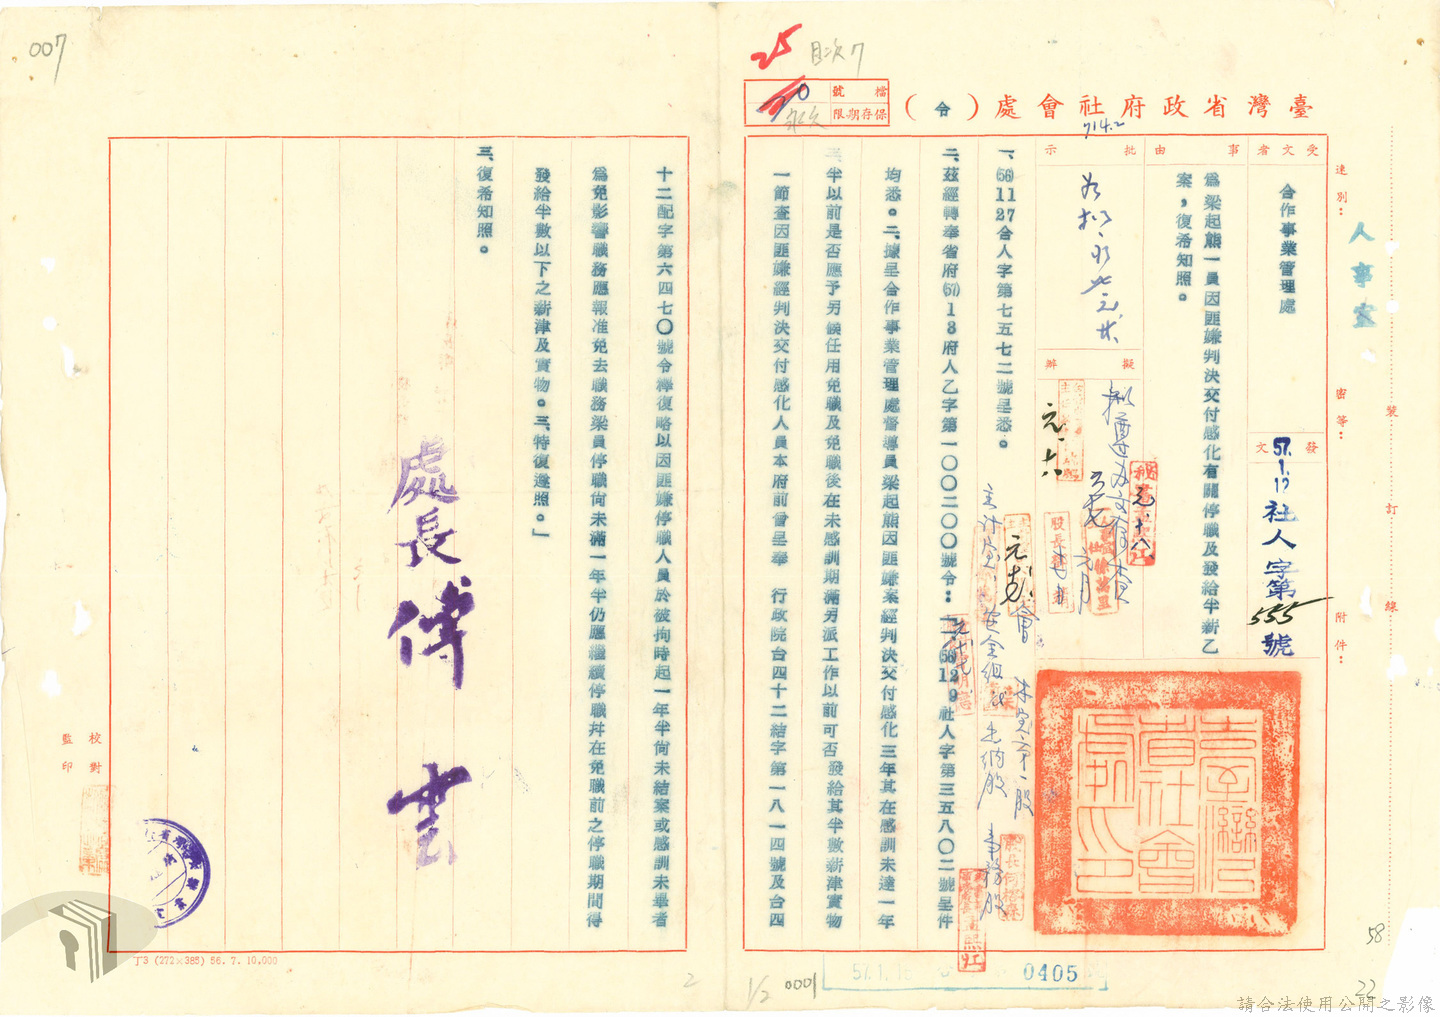 007
25
目次7
檔號
保存期限
30
永久
臺灣省政府社會處（令）
714.2
受文者
合作事業管理處
事由
為梁起熊一員因匪嫌判決交付感化有關停職及發給半薪乙
案，復希知照。
批示
擬辦
速別：
密等：
附件：
人事室
裝
訂
線
發文
57.1.17
社人字第555號
一、(56)1127合人字第七五七二號呈悉。
二、茲經轉奉省府(57)13府人乙字第一〇〇二〇〇號令：「一、(56)129社人字第三五八〇二號呈件
均悉。二、據呈合作事業管理處督導員梁起熊因匪嫌案經判決交付感化三年其在感訓未達一年
半以前是否應予另候任用免職及免職後在未感訓期滿另派工作以前可否發給其半數薪津實物
一節查因匪嫌經判決交付感化人員本府前曾呈奉　行政院台四十二結字第一八一四號及台四
十二配字第六四七〇號令釋復略以因匪嫌停職人員於被拘時起一年半尚未結案或感訓未畢者
為免影響職務應報准免去職務梁員停職尚未滿一年半仍應繼續停職並在免職前之停職期間得
發給半數以下之薪津及實物。三、特復遵照。」
三、復希知照。
處長傅雲
元.六
主計室
安全組
出納股
事務股
會
本室第一股
股長
臺灣省社會處印
校對
監印
丁3 (272×385) 56. 7. 10.000
2
1/2
0001
57.1.18
0405
58
22
請合法使用公開之影像